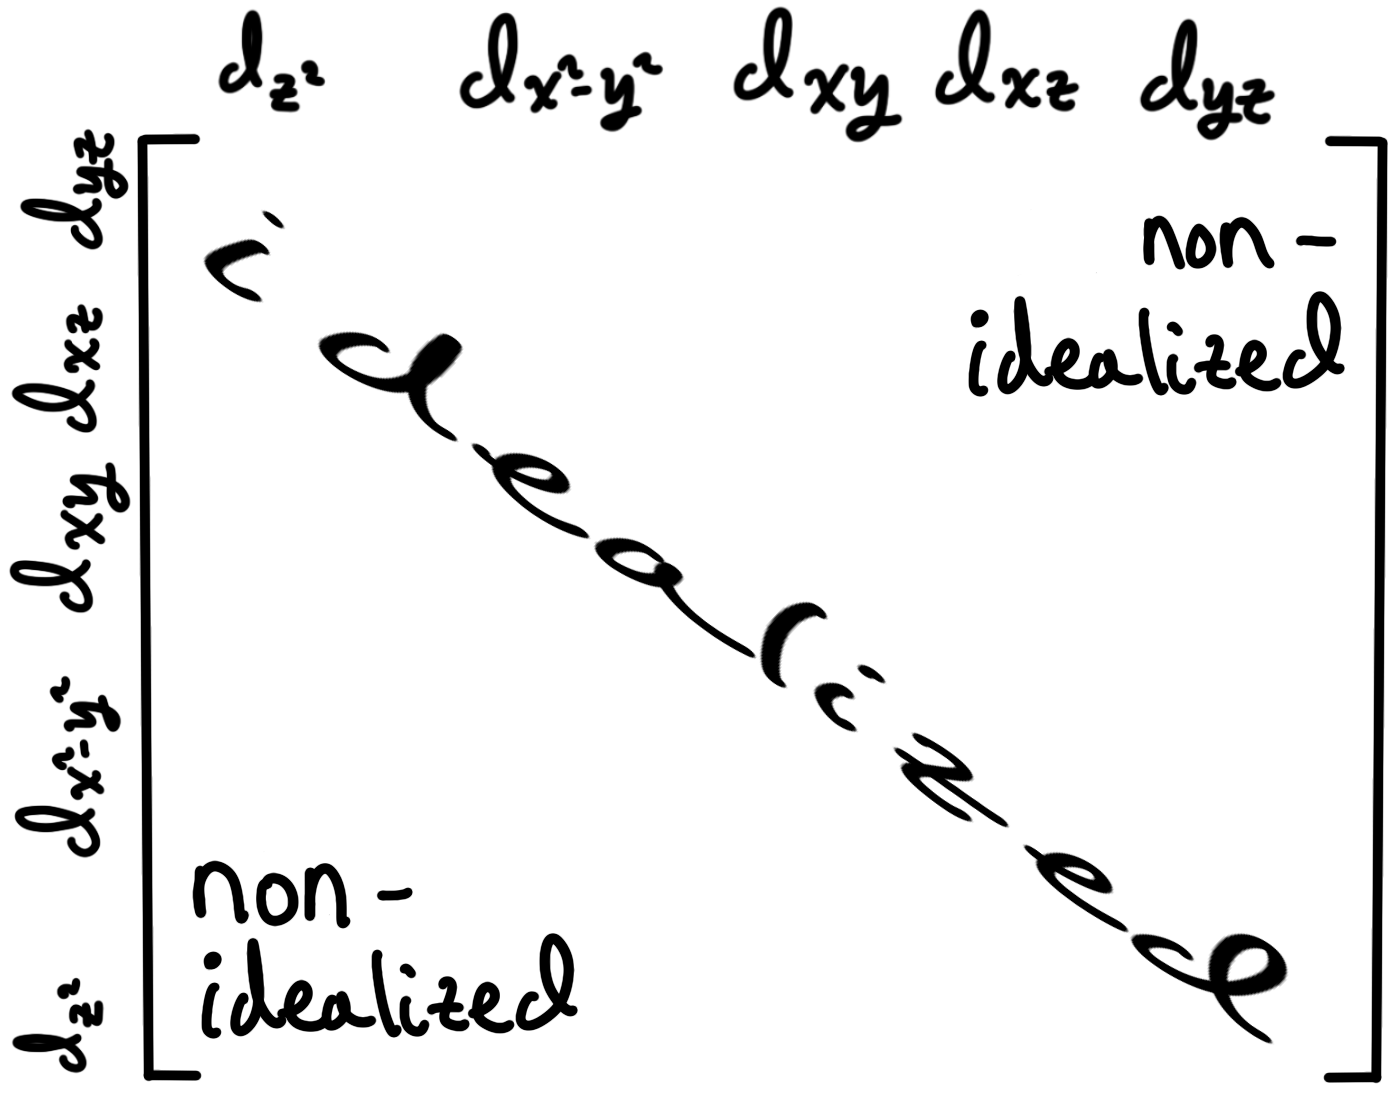 d_z² d_x²-y² d_xy d_xz d_yz
d_yz
d_xz
d_xy
d_x²-y²
d_z²
idealized
non-
idealized
non-
idealized